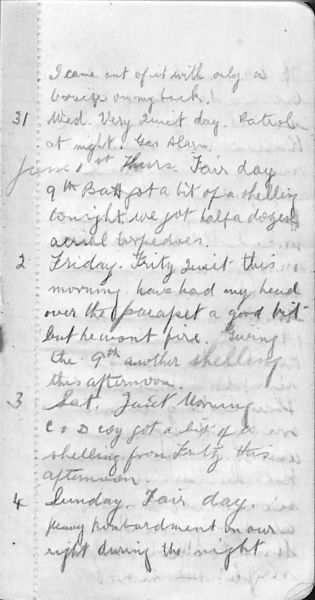 I came out of it with only a
bruise on my back!
31 Wed. Very Quiet day. Patrols
at night. Gas Alarm.
June 1st Thurs. Fair day
9th Batt got a bit of a shelling
tonight we got half a dozen
aerial torpedoes.
2 Friday. Fritz Quiet this
morning have had my head
over the parapet a good bit
but he wont fire. Giving
the 9th another shelling
this afternoon.
3 Sat. Quiet Morning
C & D coy got a bit of a
shelling from Fritz this
afternoon.
4 Sunday. Fair day.
heavy bombardment on our
right during the night